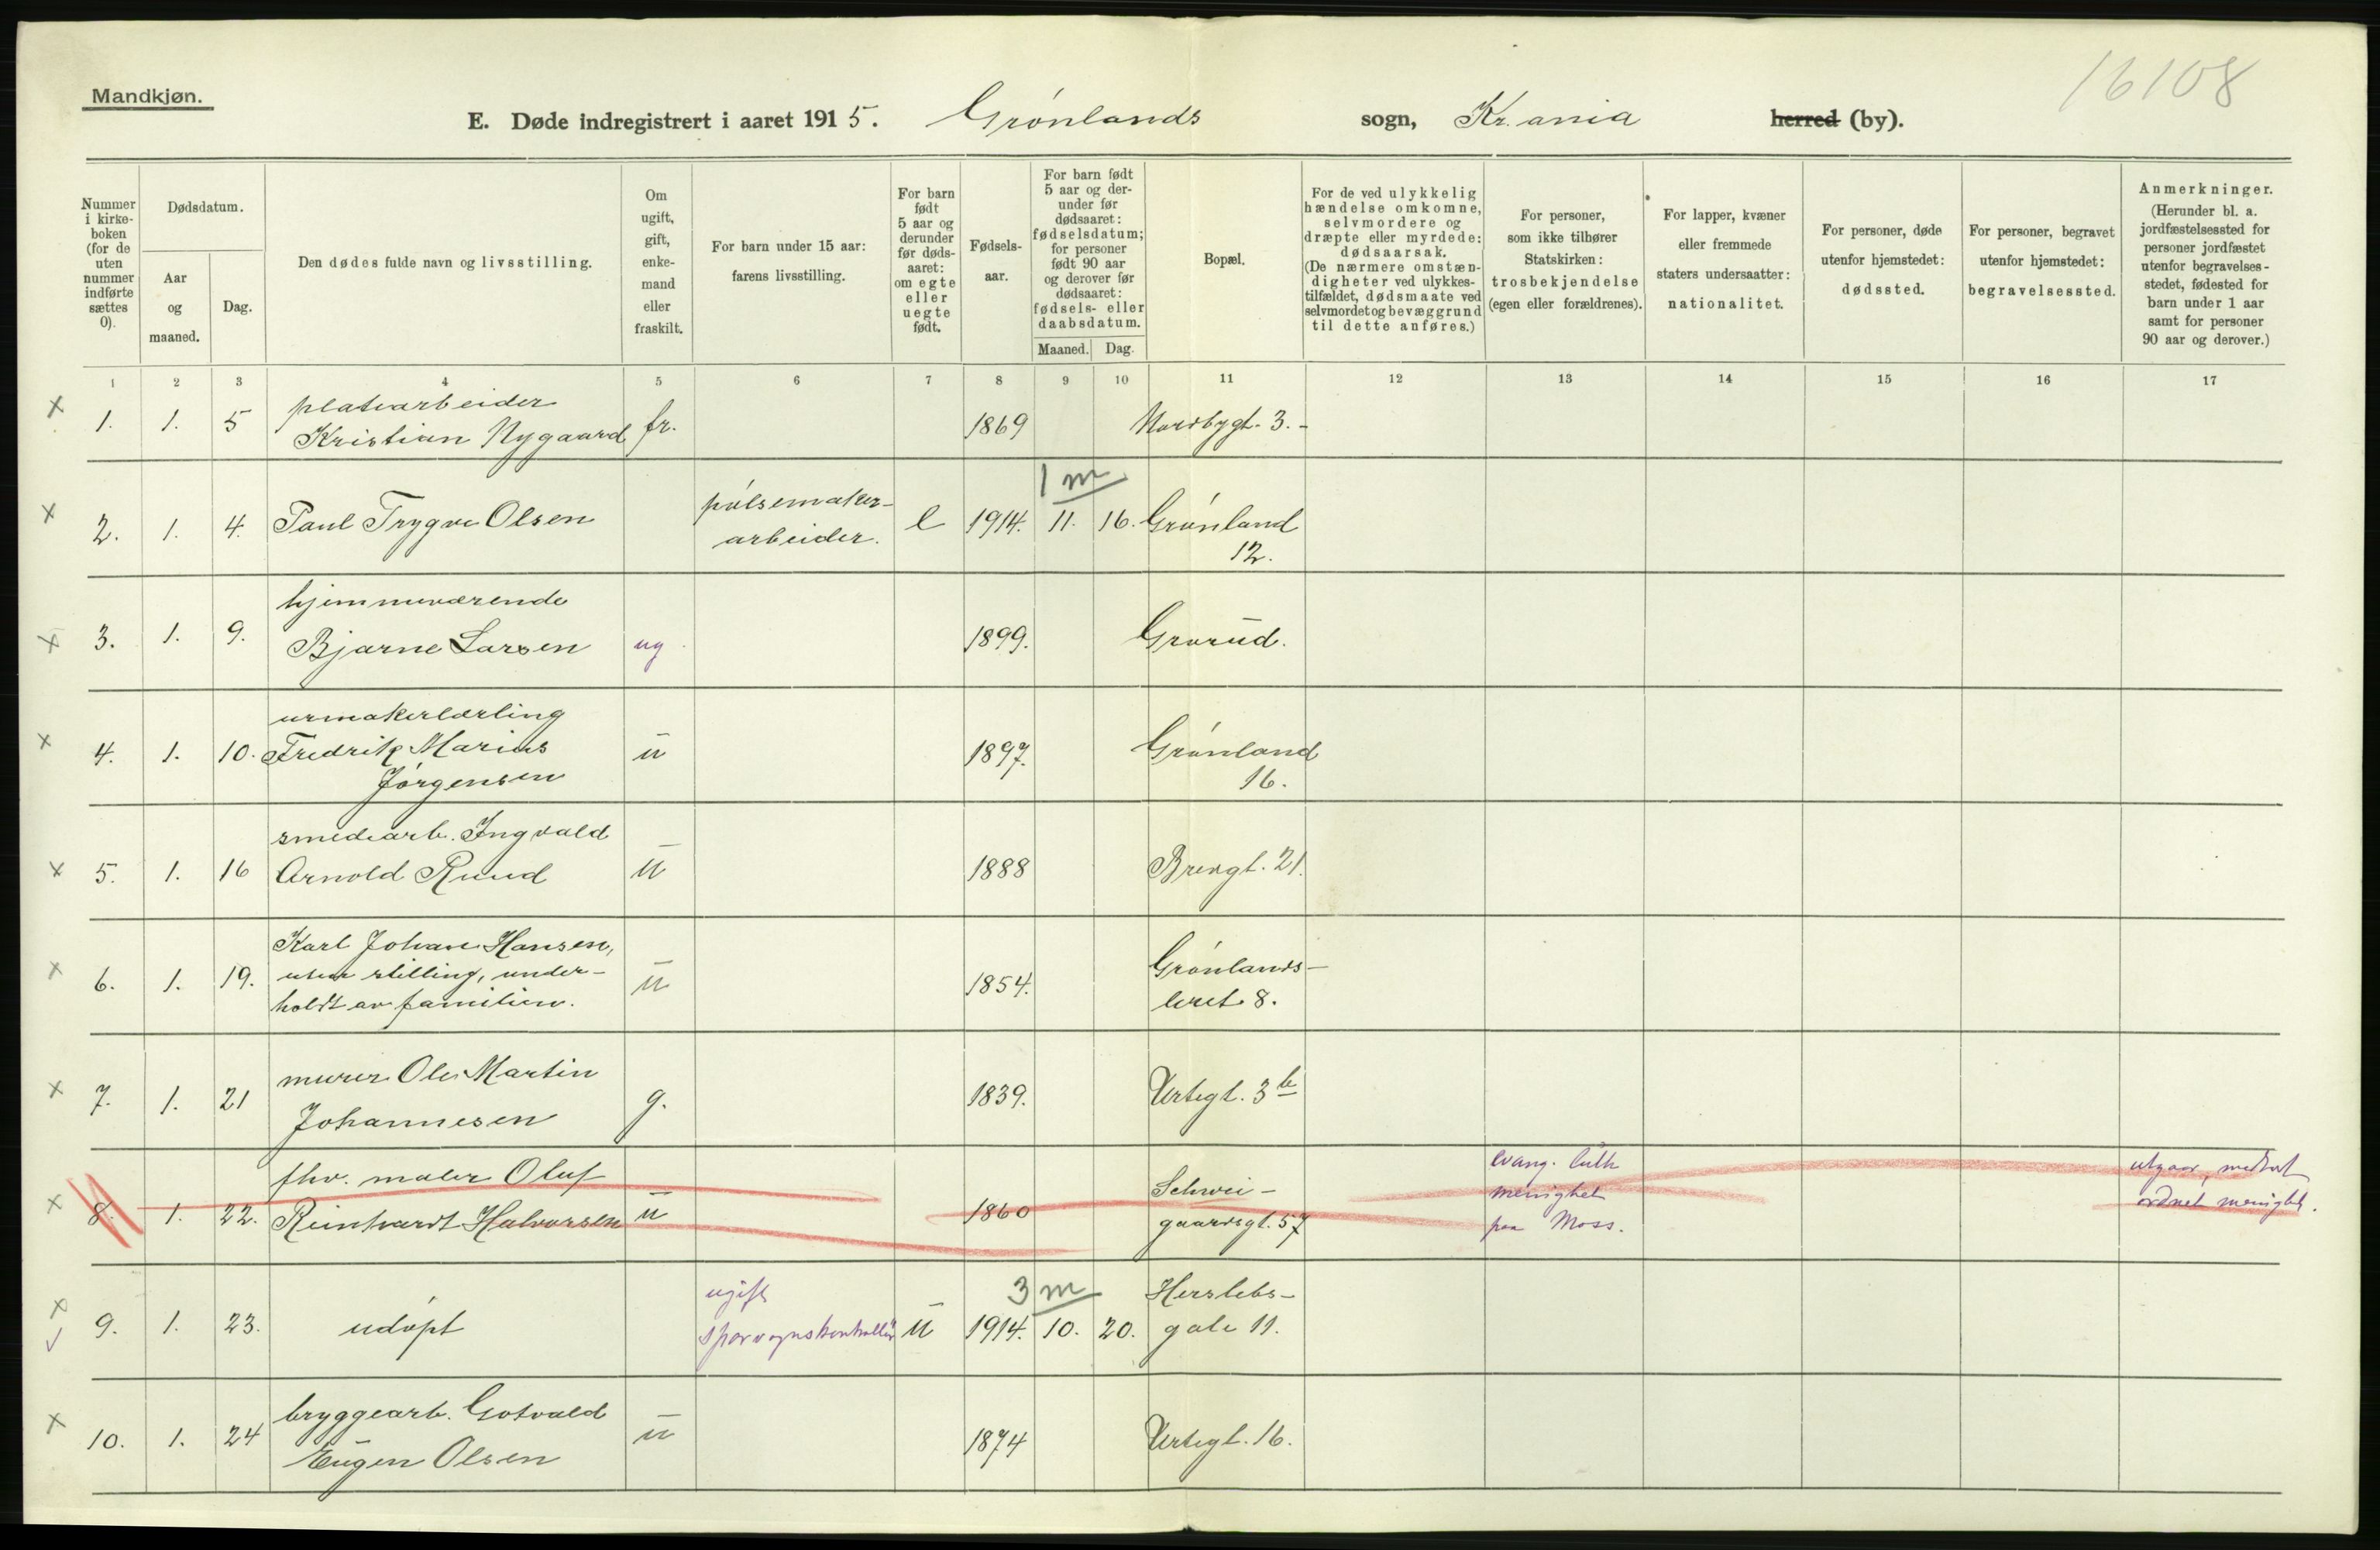 16108
Mandkjøn.
E. Døde indregistrert i aaret 1915. Grønlands sogn, Kr.ania herred (by).
Nummer i kirke- boken (for de uten nummer indførte sættes 0).
Dødsdatum.
Aar og maaned.
Dag.
Den dødes fulde navn og livsstilling.
Om ugift, gift, enke- mand eller fraskilt.
For barn under 15 aar: farens livsstilling.
For barn født 5 aar og derunder før døds- aaret: om egte eller uegte født.
Fødsels- aar.
For barn født 5 aar og der- under før dødsaaret: fødselsdatum; for personer født 90 aar og derover før dødsaaret: fødsels- eller daabsdatum.
Maaned. Dag.
Bopæl.
For de ved ulykkelig hændelse omkomne, selvmordere og dræpte eller myrdede: dødsaarsak. (De nærmere omstæn- digheter ved ulykkes- tilfældet, dødsmaate ved selvmordet og bevæggrund til dette anføres.)
For personer, som ikke tilhører Statskirken: trosbekjendelse (egen eller forældrenes).
For lapper, kvæner eller fremmede staters undersaatter: nationalitet.
For personer, døde utenfor hjemstedet: dødssted.
For personer, begravet utenfor hjemstedet: begravelsessted.
Anmerkninger. (Herunder bl. a. jordfæstelsessted for personer jordfæstet utenfor begravelses- stedet, fødested for barn under 1 aar samt for personer 90 aar og derover.)
1 2 3 4 5 6 7 8 9 10 11 12 13 14 15 16 17
x 1. 1. 5 platearbeider
Kristian Nygaard fr. 1869 Nordbygt. 3.-
1 m
x 2. 1. 4. Paul Trygve Olsen pølsemaker-
arbeider. e 1914. 11. 16. Grønland
12.
x 3. 1. 9. hjemmeværende
Bjarne Larsen ug 1899. Grorud.
x 4. 1. 10. urmakerlærling
Fredrik Marius
Jørgensen u 1897. Grønland
16.
x 5. 1. 16 smedearb. Ingvald
Arnold Ruud u 1888 Breigt. 21.
x 6. 1. 19. Karl Johan Hansen,
uten stilling, under-
holdt av familien. u 1854. Grønlands-
leret 8.
x 7. 1. 21 murer Ole Martin
Johannesen g. 1839. Urtegt. 3b
x 8. 1. 22. fhv. maler Oluf
Reinhardt Halvorsen u 1860 Schwei-
gaardsgt. 57
evang. luth
menighet
paa Moss.
utgaar,
ordnet menighet.
x 9. 1. 23. udøpt ugift
sporvognskontrollør u 3 m
1914. 10. 20. Herslebs-
gate 11.
x 10. 1. 24 bryggearb. Gotvald
Eugen Olsen u 1874 Urtegt. 16.